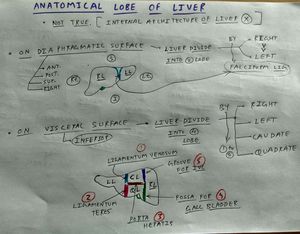 ANATOMICAL LOBE OF LIVER
• NOT TRUE. [INTERNAL ARCHITECTURE OF LIVER (X)]
• ON DIAPHRAGMATIC SURFACE → LIVER DIVIDE INTO ② LOBE
BY RIGHT
LEFT
FALCIFORM LIG
ANT.
POST.
SUP.
RIGHT
RL
LL
• ON VISCERAL SURFACE → LIVER DIVIDE INTO ④ LOBE
(INFERIOR)
BY
RIGHT
LEFT
CAUDATE
QUADRATE
①
LIGAMENTUM VENOSUM
GROOVE ⑤
FOR IVC
LL
CL
QL
RL
②
LIGAMENTUM
TERES
PORTA ③
HEPATIS
FOSSA FOR ④
GALL BLADDER